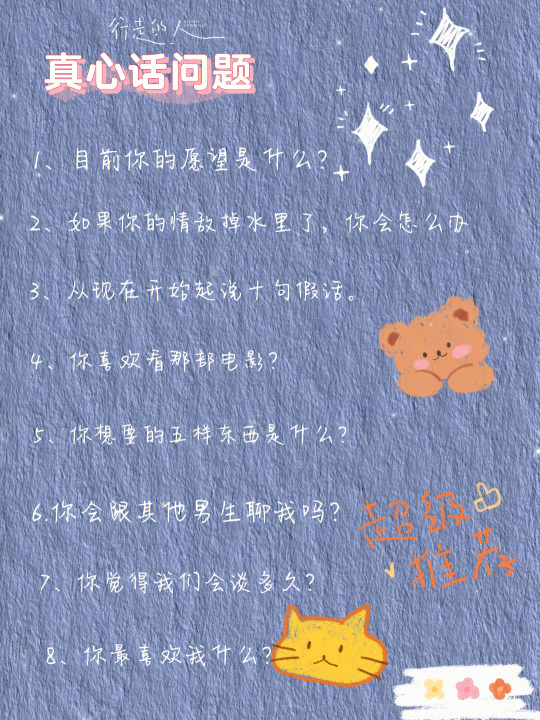 行走的人
真心话问题
1、目前你的愿望是什么?
2、如果你的情敌掉水里了，你会怎么办
3、从现在开始起说十句假话。
4、你喜欢看那部电影?
5、你想要的五样东西是什么?
6.你会跟其他男生聊我吗?
7、你觉得我们会谈多久?
8、你最喜欢我什么?
超级
推荐